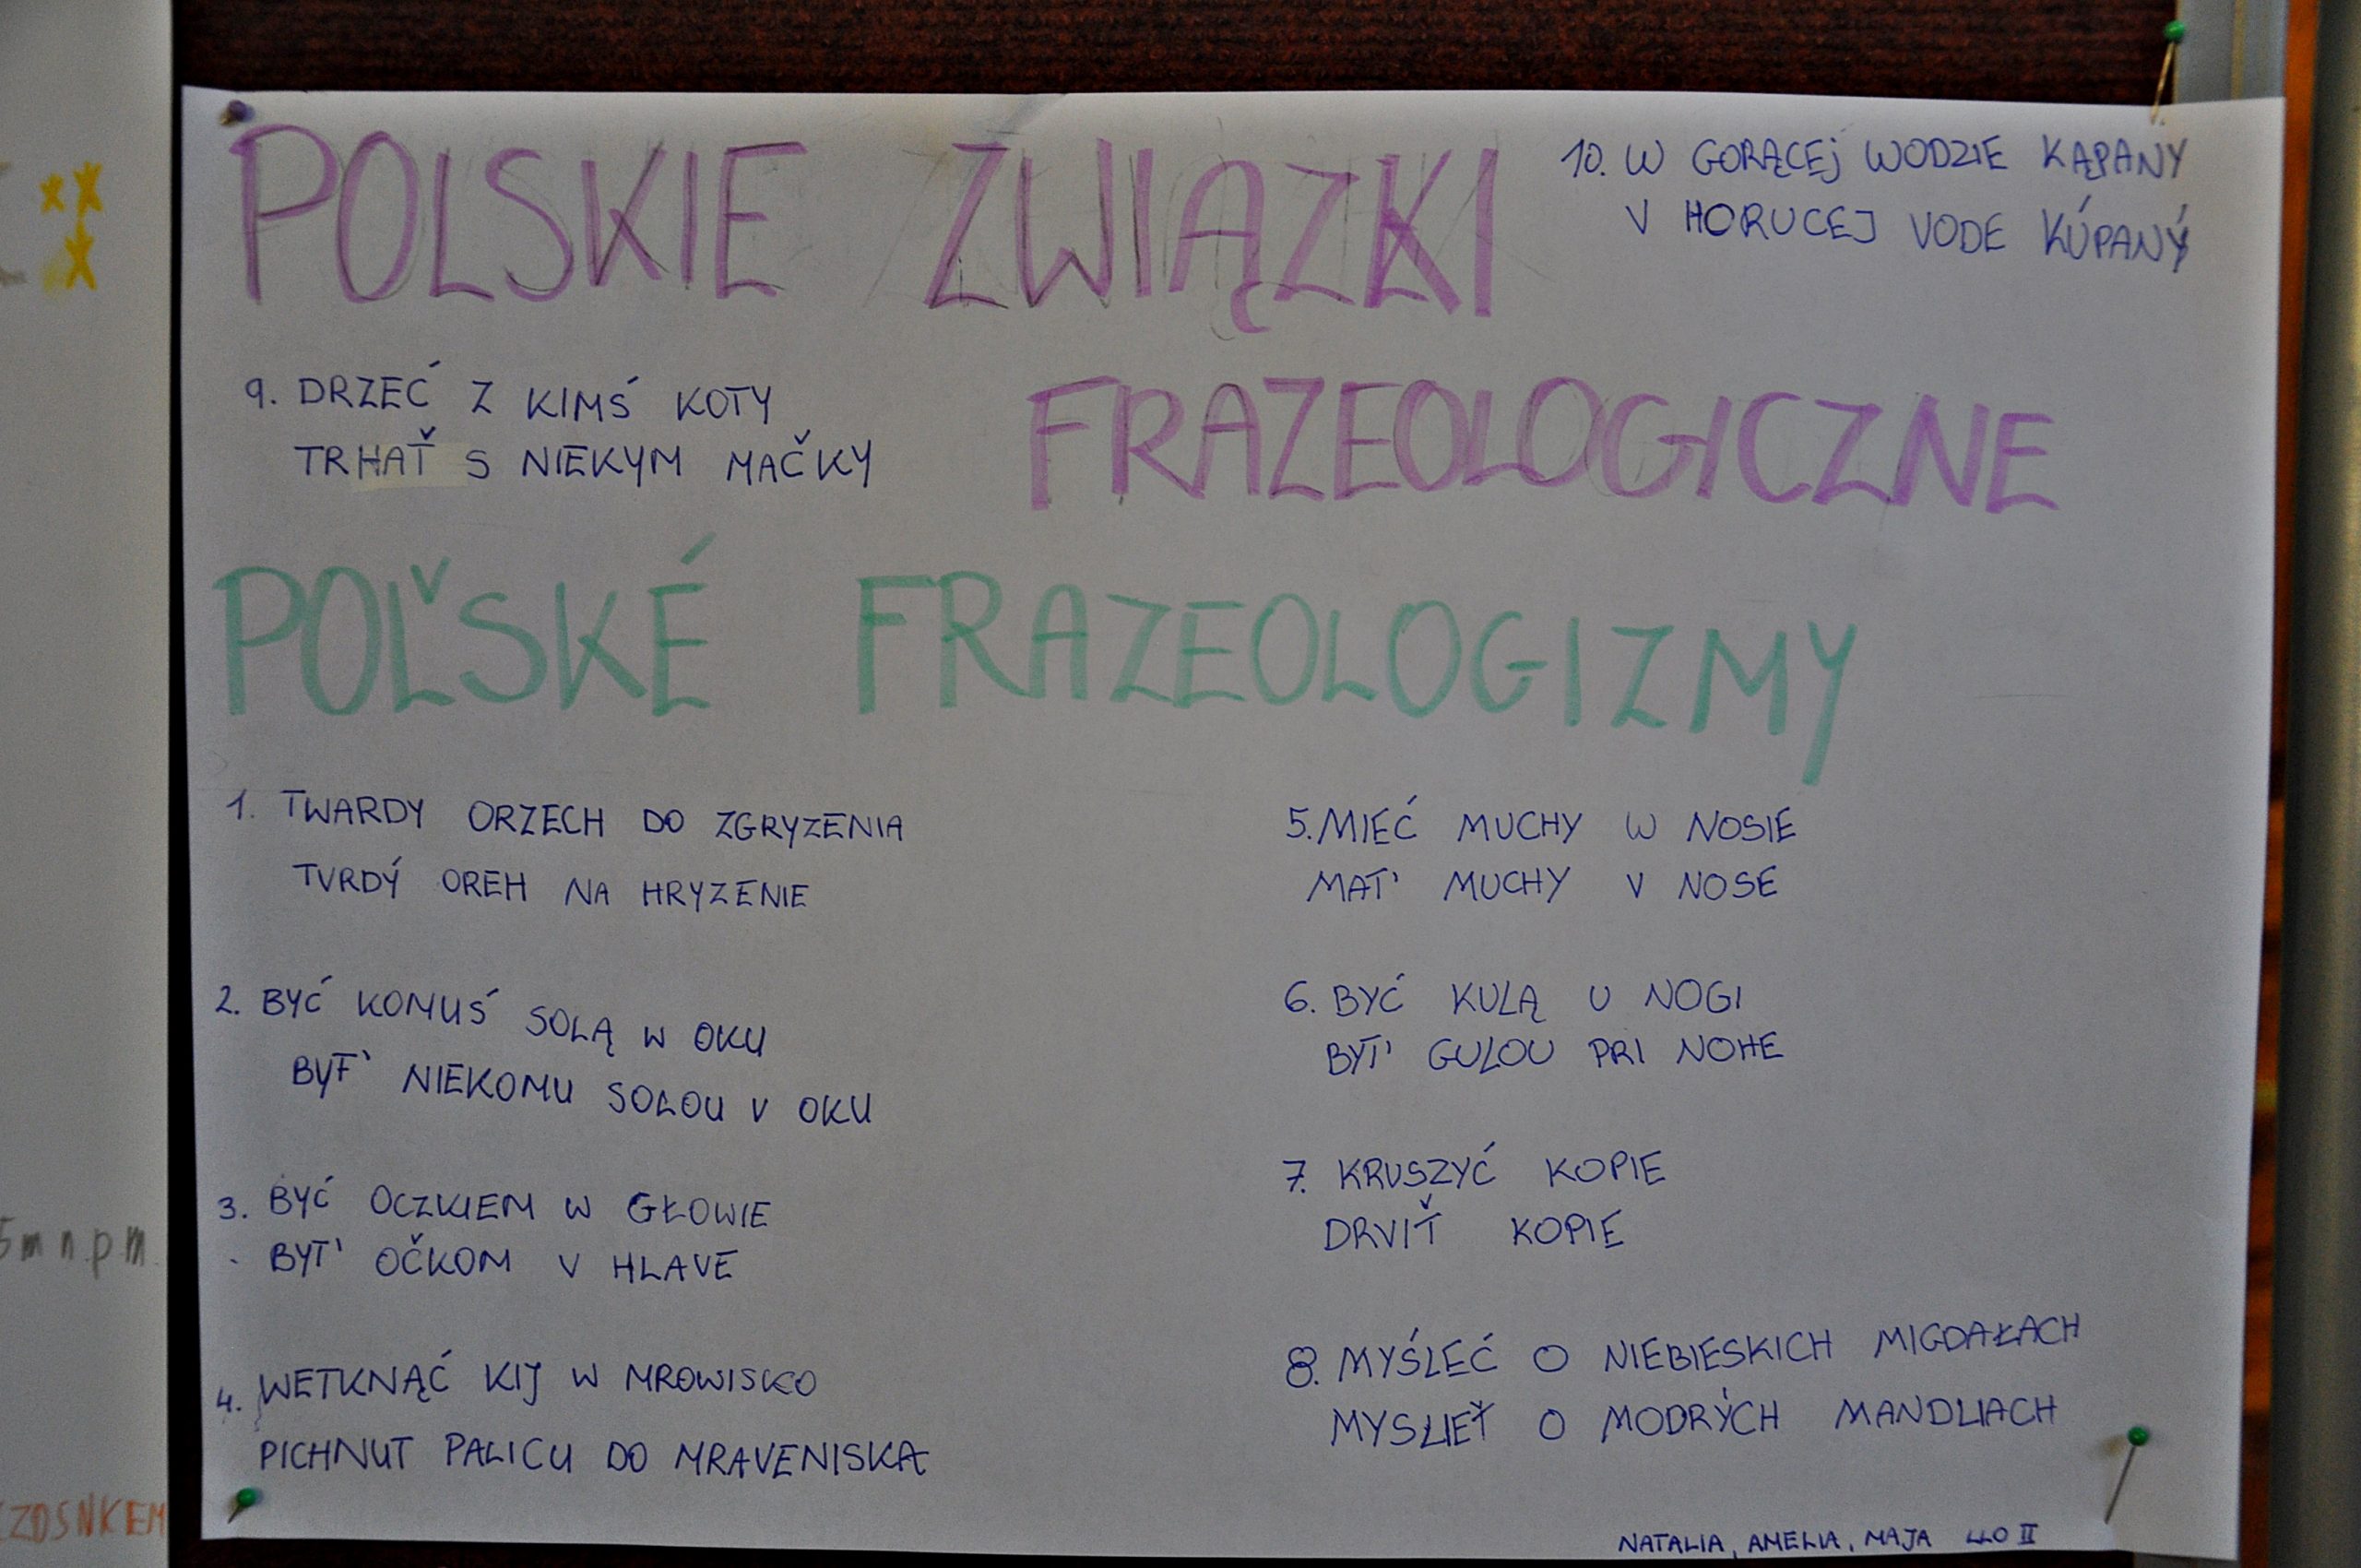 POLSKIE ZWIĄZKI
FRAZEOLOGICZNE
10. W GORĄCEJ WODZIE KĄPANY
V HORUCEJ VODE KÚPANÝ
9. DRZEĆ Z KIMŚ KOTY
TRHAŤ S NIEKYM MAČKY
POĽSKÉ FRAZEOLOGIZMY
1. TWARDY ORZECH DO ZGRYZENIA
TVRDÝ OREH NA HRYZENIE
2. BYĆ KOMUŚ SOLĄ W OKU
BYŤ NIEKOMU SOLOU V OKU
3. BYĆ OCZKIEM W GŁOWIE
BYŤ OČKOM V HLAVE
4. WETKNĄĆ KIJ W MROWISKO
PICHNUT PALICU DO MRAVENISKA
5. MIEĆ MUCHY W NOSIE
MAŤ MUCHY V NOSE
6. BYĆ KULĄ U NOGI
BYŤ GULOU PRI NOHE
7. KRUSZYĆ KOPIE
DRVIŤ KOPIE
8. MYŚLEĆ O NIEBIESKICH MIGDAŁACH
MYSLIEŤ O MODRÝCH MANDLIACH
NATALIA, AMELIA, MAJA LLO II
5 m n.p.m.